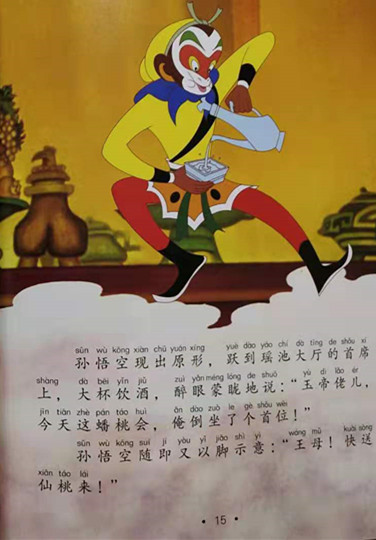 sūn wù kōng xiàn chū yuán xíng yuè dào yáo chí dà tīng de shǒu xí
孙悟空现出原形，跃到瑶池大厅的首席
shàng dà bēi yǐn jiǔ zuì yǎn méng lóng de shuō yù dì lǎo ér
上，大杯饮酒，醉眼蒙眬地说：“玉帝佬儿，
jīn tiān zhè pán táo huì ǎn dào zuò le gè shǒu wèi
今天这蟠桃会，俺倒坐了个首位！”
sūn wù kōng suí jí yòu yǐ jiǎo shì yì wáng mǔ kuài sòng
孙悟空随即又以脚示意：“王母！快送
xiān táo lái
仙桃来！”
• 15 •